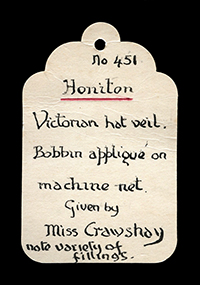 No 451
Honiton
Victorian hat veil.
Bobbin appliqué on
machine net.
Given by
Miss Crawshay
note variety of
fillings.